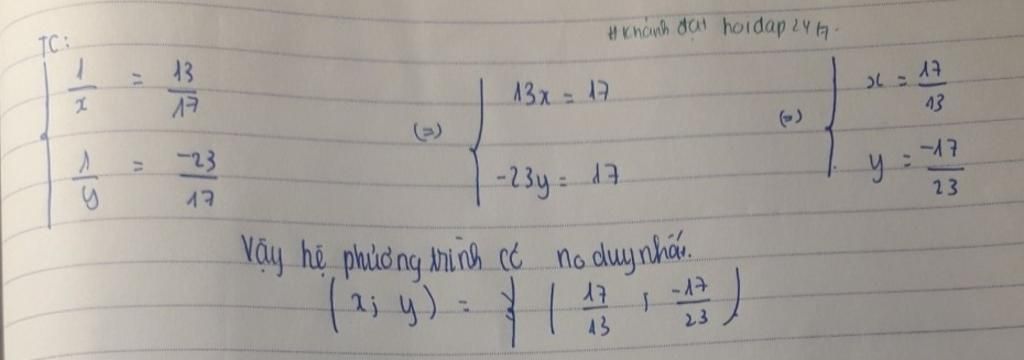 #Khánh đạt hoidap247.
TC:
{ 1/x = 13/17 (=) { 13x = 17 (=) { x = 17/13
1/y = -23/17 -23y = 17 y = -17/23
Vậy hệ phương trình có no duy nhất.
(x; y) = (17/13 ; -17/23)